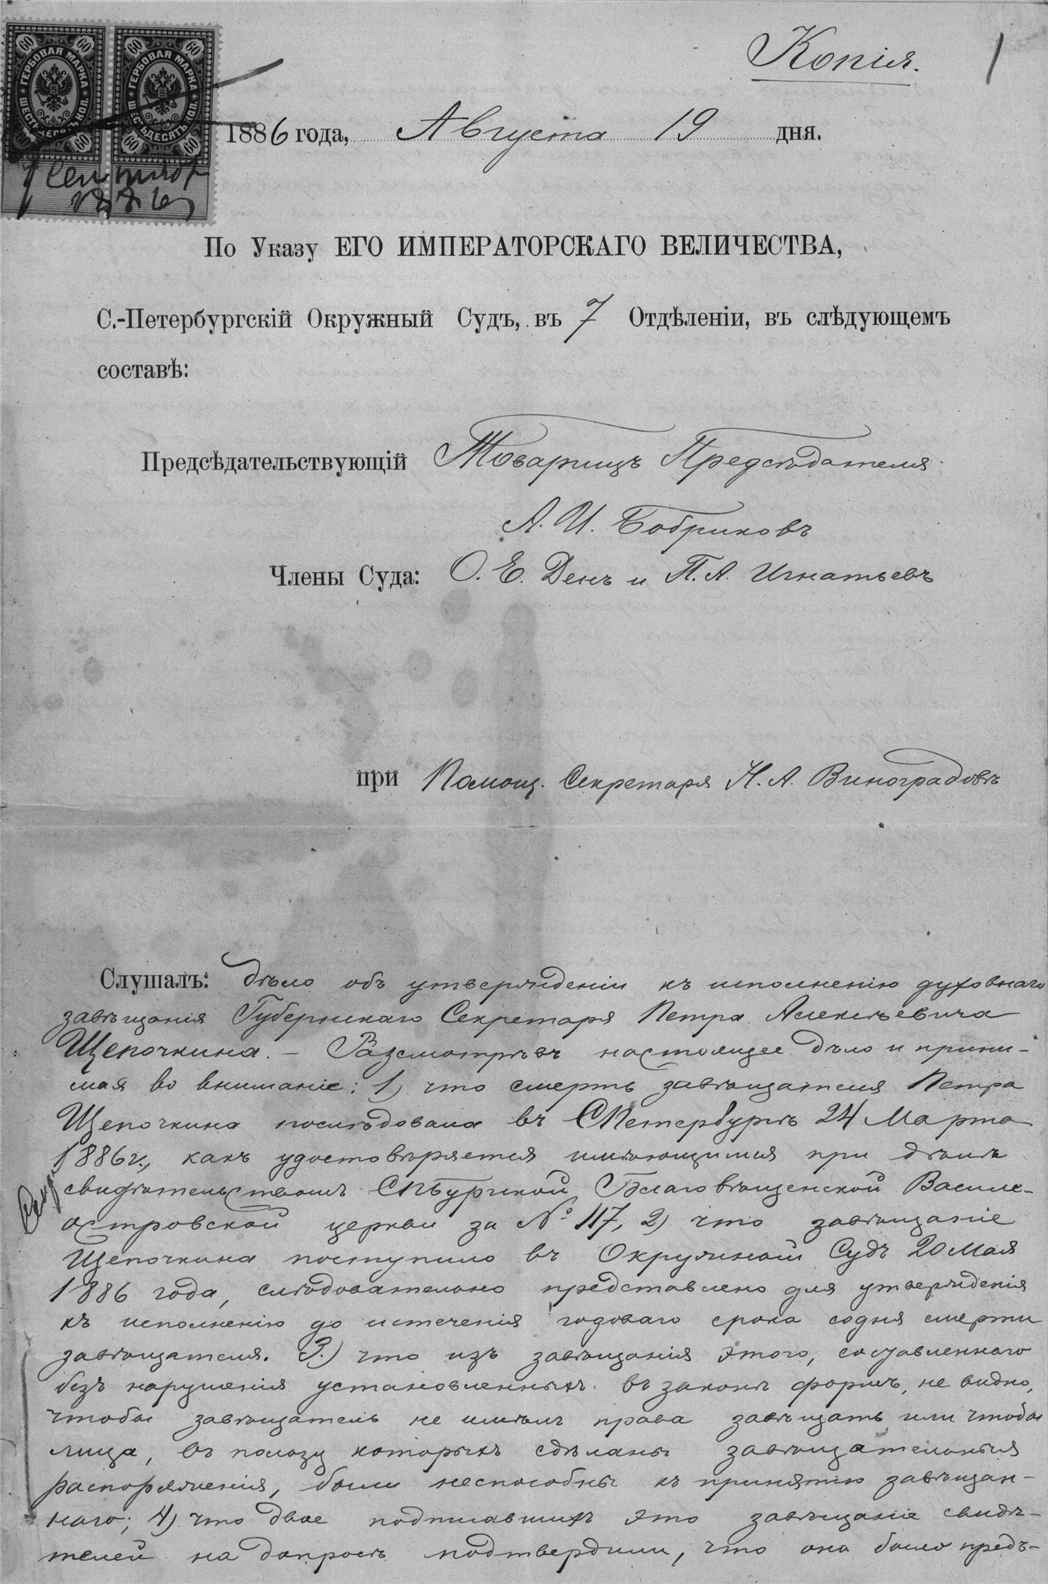 Копія. 1
60 60 60 60
ГЕРБОВАЯ МАРКА ГЕРБОВАЯ МАРКА
1886 года, Августа 19 дня.
По Указу ЕГО ИМПЕРАТОРСКАГО ВЕЛИЧЕСТВА,
С.-Петербургскій Окружный Судъ, въ 7 Отдѣленіи, въ слѣдующемъ
составѣ:
Предсѣдательствующій Товарищъ Предсѣдателя
А. И. Бобриковъ
Члены Суда: О. Е. Денъ и П. А. Игнатьевъ
при Помощ. Секретаря Н. А. Виноградовѣ
Слушалъ: дѣло объ утвержденіи къ исполненію духовнаго
завѣщанія Губернскаго Секретаря Петра Алексѣевича
Щепочкина. — Разсмотрѣвъ настоящее дѣло и прини-
мая во вниманіе: 1) что смерть завѣщателя Петра
Щепочкина послѣдовала въ СПетербургѣ 24 Марта
1886 г., какъ удостовѣряется имѣющимся при дѣлѣ
свидѣтельствомъ СПБургской Благовѣщенской Василе-
островской церкви за № 117, 2) что завѣщаніе
Щепочкина поступило въ Окружный Судъ 20 Мая
1886 года, слѣдовательно представлено для утвержденія
къ исполненію до истеченія годоваго срока со дня смерти
завѣщателя. 3.) что изъ завѣщанія этого, составленнаго
безъ нарушенія установленныхъ въ законѣ формъ, не видно,
чтобы завѣщатель не имѣлъ права завѣщать или чтобы
лица, въ пользу которыхъ сдѣланы завѣщательныя
распоряженія, были неспособны къ принятію завѣщан-
наго; 4) что двое подписавшихъ это завѣщаніе свидѣ-
телей на допросѣ подтвердили, что оно было предъ-